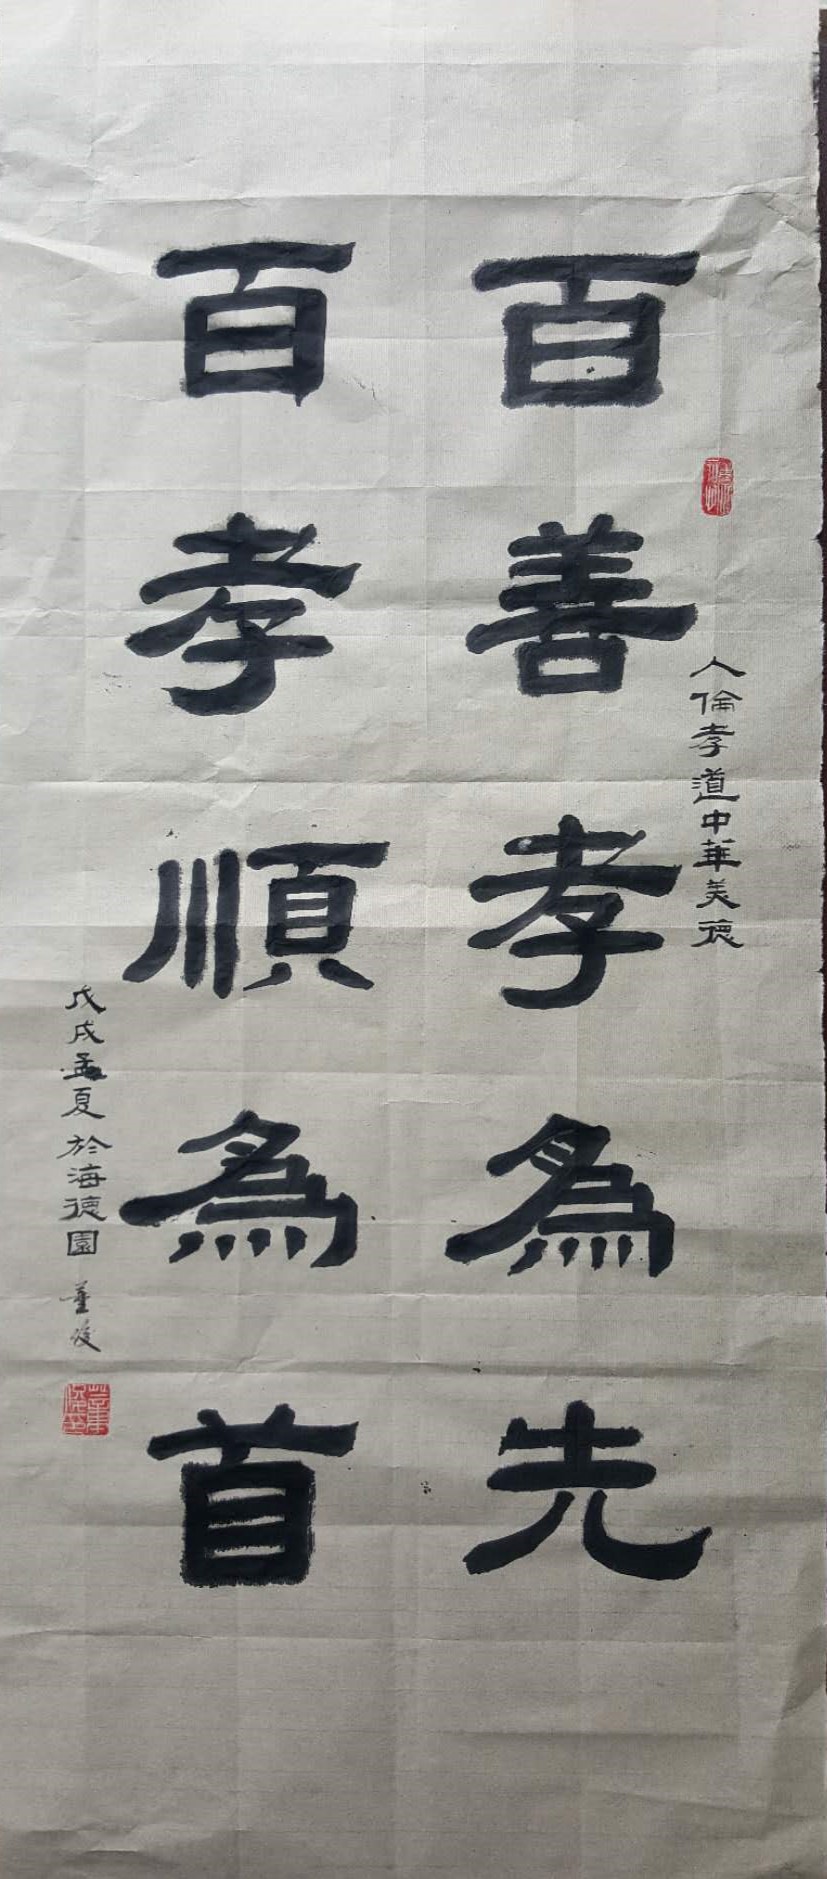 人倫孝道中華美德
百善孝為先
百孝順為首
戊戌孟夏於海德園